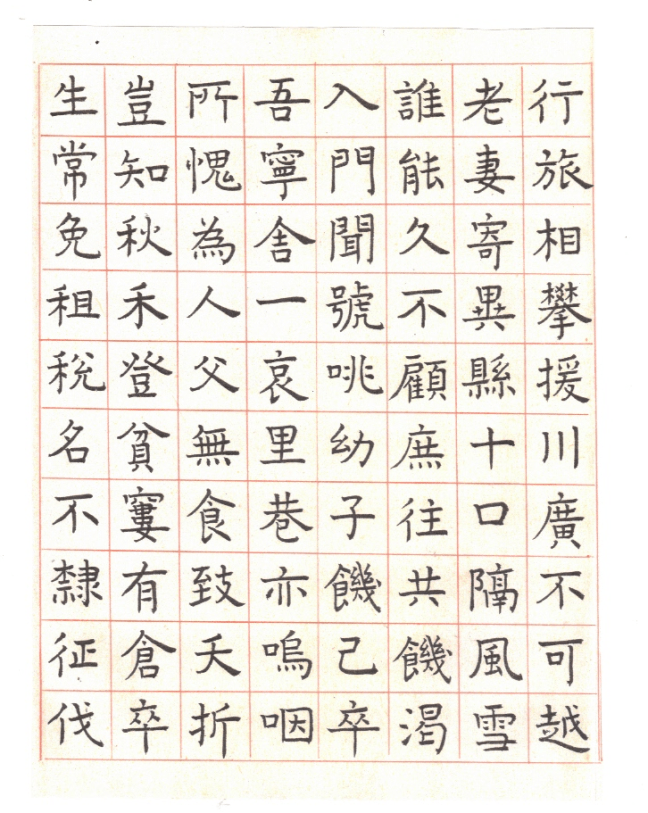 行旅相攀援川廣不可越
老妻寄異縣十口隔風雪
誰能久不顧庶往共饑渴
入門聞號咷幼子饑己卒
吾寧舍一哀里巷亦嗚咽
所愧為人父無食致夭折
豈知秋禾登貧窶有倉卒
生常免租稅名不隸征伐